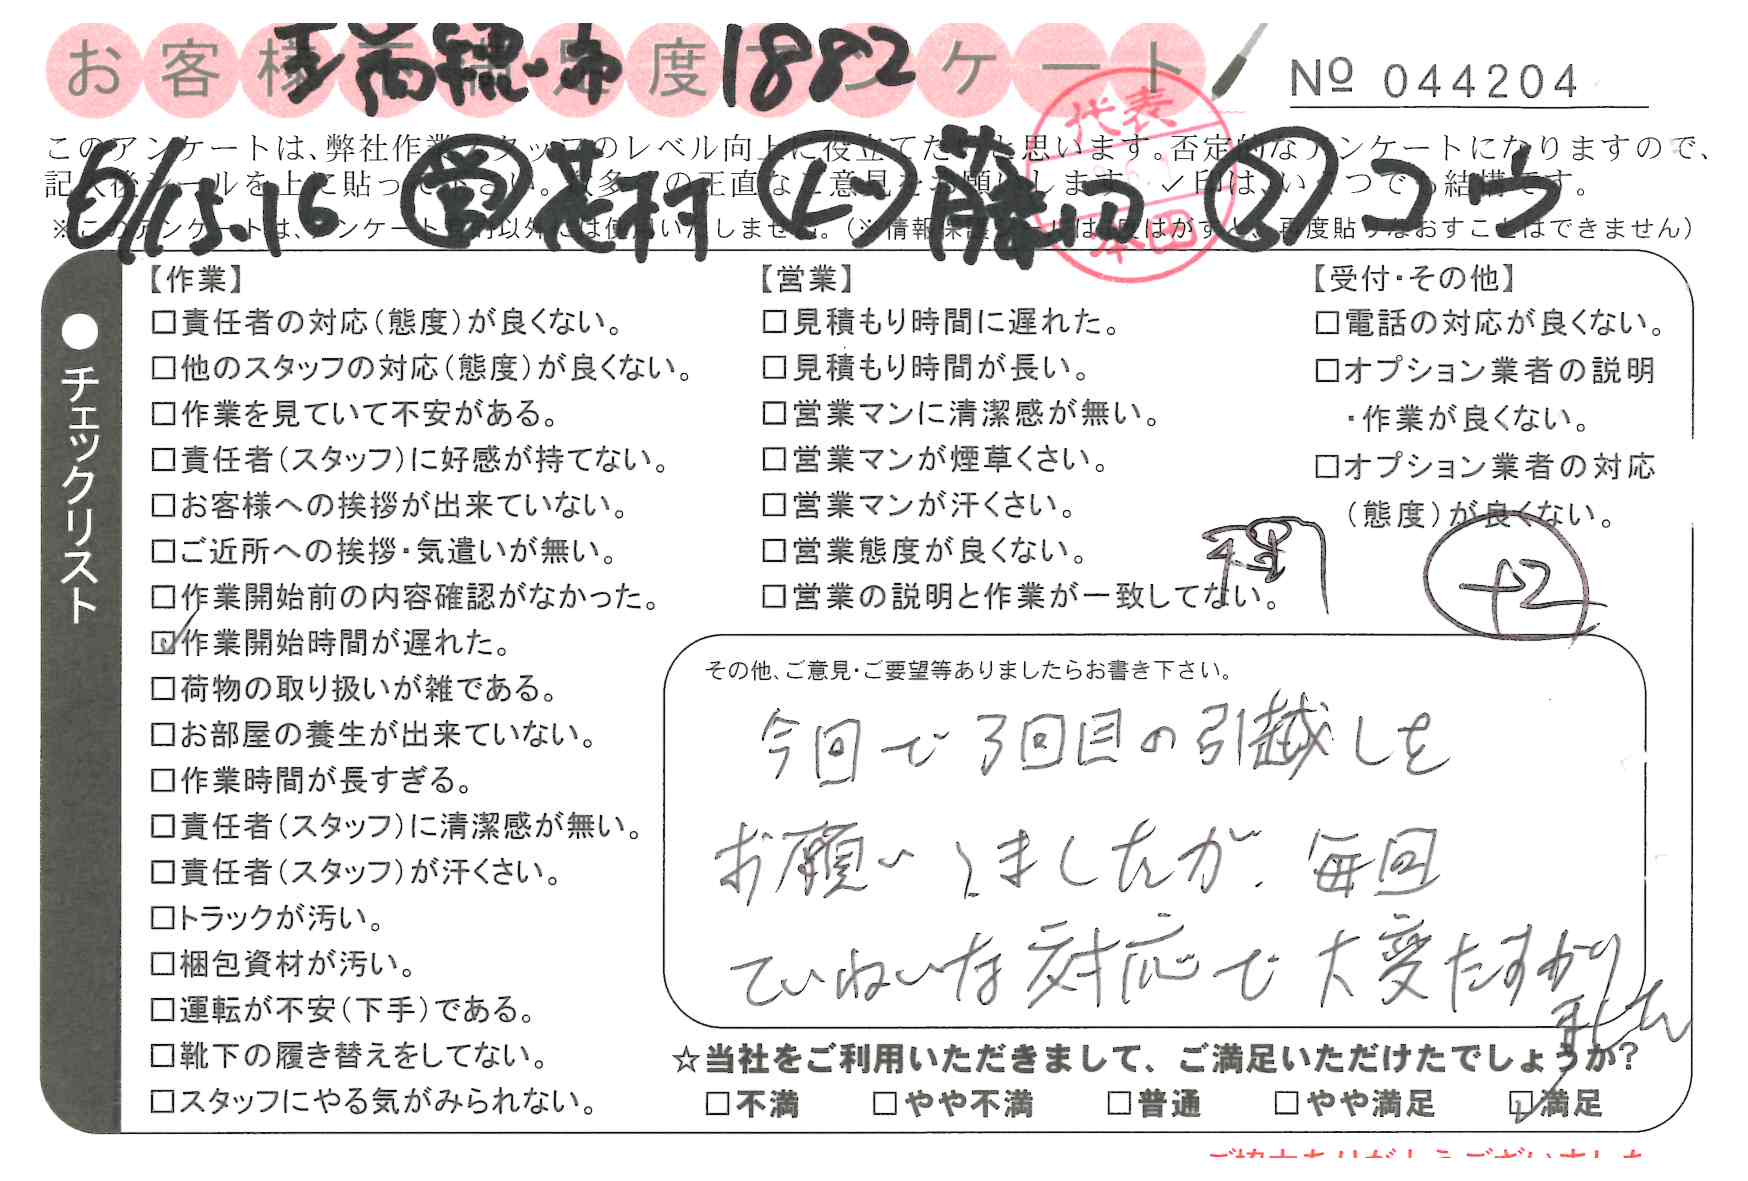 お客様満足度アンケート
瑞穂市 1882
№ 044204
このアンケートは、弊社作業スタッフのレベル向上に役立てたいと思います。否定的なアンケートになりますので、
記入後シールを上に貼って下さい。数多くの正直なご意見をお願いします。✓印は、いくつでも結構です。
※このアンケートは、アンケート目的以外には使用いたしません。(※情報保護シールは1度はがすと、再度貼りなおすことはできません)
6/15.16 営 花村 L 藤田 S コウ
代表
本田
●チェックリスト
【作業】
□責任者の対応(態度)が良くない。
□他のスタッフの対応(態度)が良くない。
□作業を見ていて不安がある。
□責任者(スタッフ)に好感が持てない。
□お客様への挨拶が出来ていない。
□ご近所への挨拶・気遣いが無い。
□作業開始前の内容確認がなかった。
☑作業開始時間が遅れた。
□荷物の取り扱いが雑である。
□お部屋の養生が出来ていない。
□作業時間が長すぎる。
□責任者(スタッフ)に清潔感が無い。
□責任者(スタッフ)が汗くさい。
□トラックが汚い。
□梱包資材が汚い。
□運転が不安(下手)である。
□靴下の履き替えをしてない。
□スタッフにやる気がみられない。
【営業】
□見積もり時間に遅れた。
□見積もり時間が長い。
□営業マンに清潔感が無い。
□営業マンが煙草くさい。
□営業マンが汗くさい。
□営業態度が良くない。
□営業の説明と作業が一致してない。
【受付・その他】
□電話の対応が良くない。
□オプション業者の説明
・作業が良くない。
□オプション業者の対応
(態度)が良くない。
+2
その他、ご意見・ご要望等ありましたらお書き下さい。
今回で3回目の引越しを
お願いしましたが、毎回
ていねいな対応で大変たすかり
ました
☆当社をご利用いただきまして、ご満足いただけたでしょうか?
□不満 □やや不満 □普通 □やや満足 ☑満足
ご協力ありがとうございました